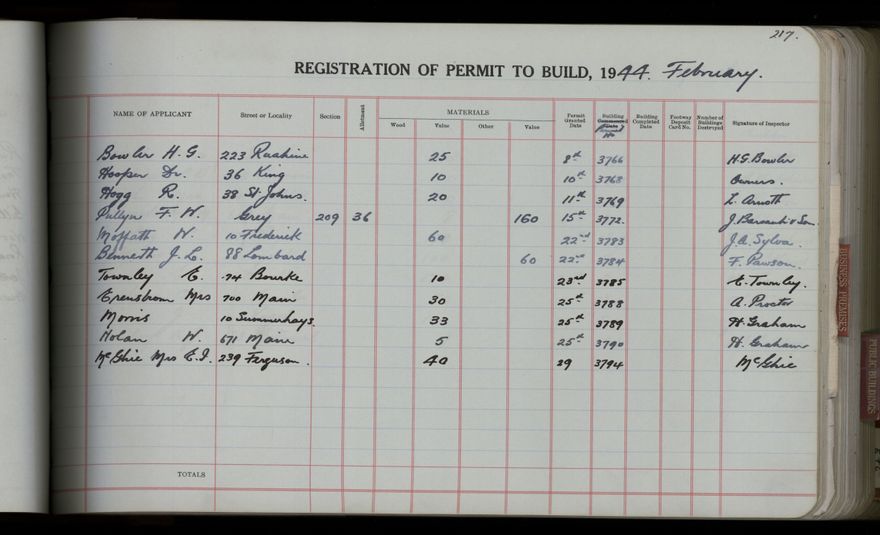 217.
REGISTRATION OF PERMIT TO BUILD, 1944. February.
NAME OF APPLICANT Street or Locality Section Allotment MATERIALS Wood Value Other Value Permit Granted Date Building Commenced Date Permit No Building Completed Date Footway Deposit Card No. Number of Buildings Destroyed Signature of Inspector
Bowler H. G. 223 Ruahine 25 8th 3766 H. G. Bowler
Hooper Dr. 36 King 10 10th 3768 Owners.
Hogg R. 38 St. Johns. 20 11th 3769 L. Arnott
Pullyn F. W. Grey 209 36 160 15th 3772. & Son
Moffath W. 10 Frederick 60 22nd 3783 J. A. Sylva.
Bennett J. L. 88 Lombard 60 22nd 3784 F. Pawson.
Townley E. 74 Bourke 10 23rd 3785 E. Townley.
Mrs 700 Main 30 25th 3788 A. Procter
Morris 10 Summerhays. 33 25th 3789 H. Graham
Nolan W. 671 Main 5 25th 3790 H. Graham
McGhie Mrs E. I. 239 Ferguson. 40 29 3794 McGhie
TOTALS
BUSINESS PREMISES
PUBLIC BUILDINGS